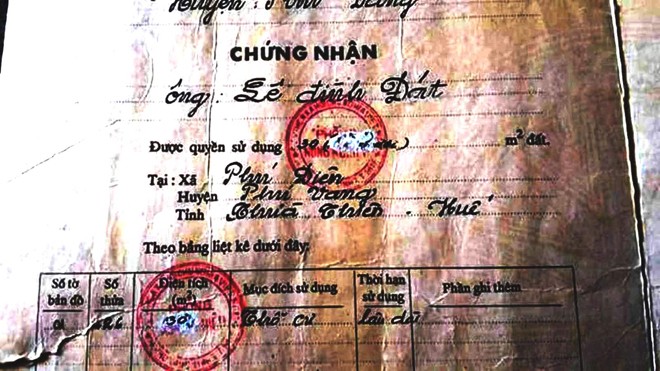 Huyện: Phú Vang
CHỨNG NHẬN
ông: Lê đình Đát
Được quyền sử dụng 30 ( m² đất.
Tại: Xã Phú Diên
Huyện Phú Vang
Tỉnh Thừa Thiên - Huế
Theo bảng liệt kê dưới đây:
Số tờ bản đồ Số thửa Diện tích (m²) Mục đích sử dụng Thời hạn sử dụng Phần ghi thêm
01 30 Thổ cư lâu dài